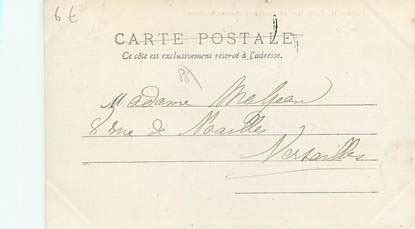 6 €
CARTE POSTALE
Ce côté est exclusivement réservé à l'adresse.
Madame Maljean
8 rue de Noailles
Versailles